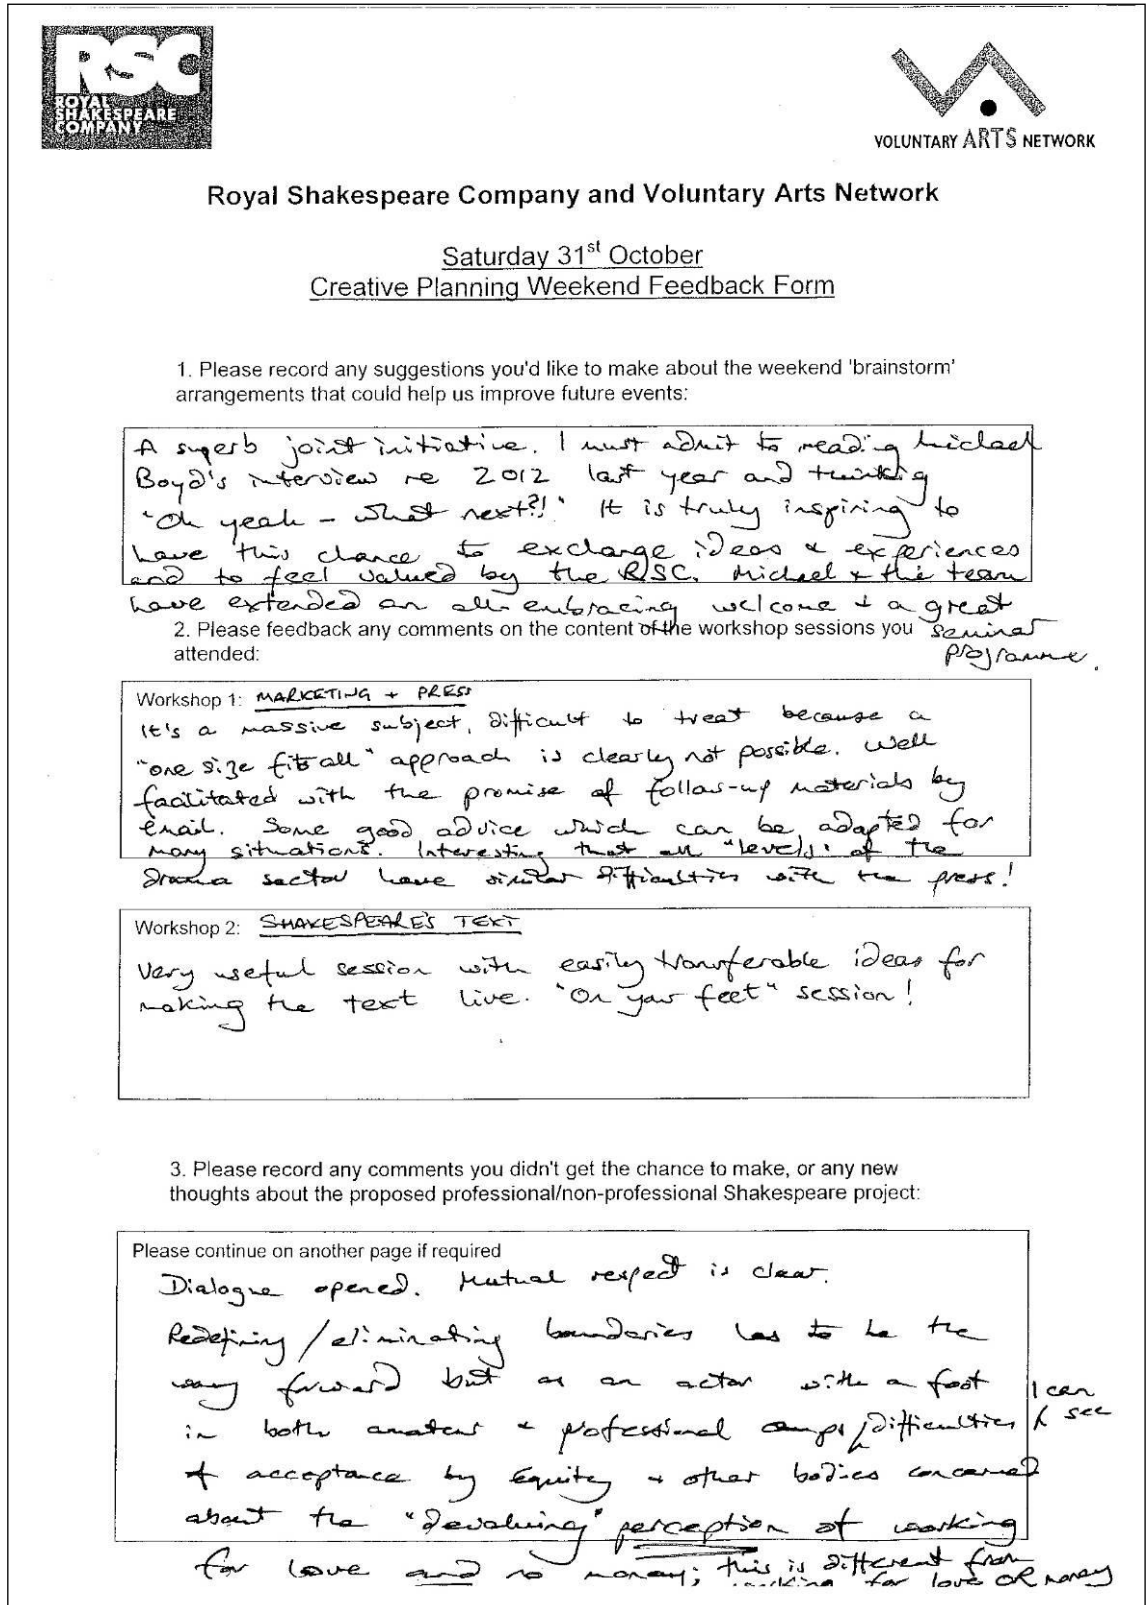 RSC
ROYAL
SHAKESPEARE
COMPANY
VOLUNTARY ARTS NETWORK
Royal Shakespeare Company and Voluntary Arts Network
Saturday 31st October
Creative Planning Weekend Feedback Form
1. Please record any suggestions you'd like to make about the weekend 'brainstorm'
arrangements that could help us improve future events:
A superb joint initiative. I must admit to reading Michael
Boyd's interview re 2012 last year and thinking
"Oh yeah - what next?!" It is truly inspiring to
have this chance to exchange ideas + experiences
and to feel valued by the RSC. Michael + the team
have extended an all-embracing welcome + a great
seminar
programme.
2. Please feedback any comments on the content of the workshop sessions you
attended:
Workshop 1: MARKETING + PRESS
It's a massive subject, difficult to treat because a
"one size fits all" approach is clearly not possible. Well
facilitated with the promise of follow-up materials by
email. Some good advice which can be adapted for
many situations. Interesting that all "levels" of the
drama sector have similar difficulties with the press!
Workshop 2: SHAKESPEARE'S TEXT
Very useful session with easily transferable ideas for
making the text live. "On your feet" session!
3. Please record any comments you didn't get the chance to make, or any new
thoughts about the proposed professional/non-professional Shakespeare project:
Please continue on another page if required
Dialogue opened. Mutual respect is clear.
Redefining/eliminating boundaries has to be the
way forward but as an actor with a foot
in both amateur + professional camps I can see difficulties
of acceptance by Equity + other bodies concerned
about the "devaluing" perception of working
for love and no money; this is different from
working for love OR money